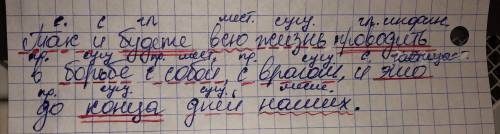 с. с гл. мест. сущ. гл. инфин.
Так и будете всю жизнь проводить
пр. сущ. пр. мест. пр. сущ. с
в борьбе с собой, с врагом, и это
пр. сущ. сущ. мест.
до конца дней наших.